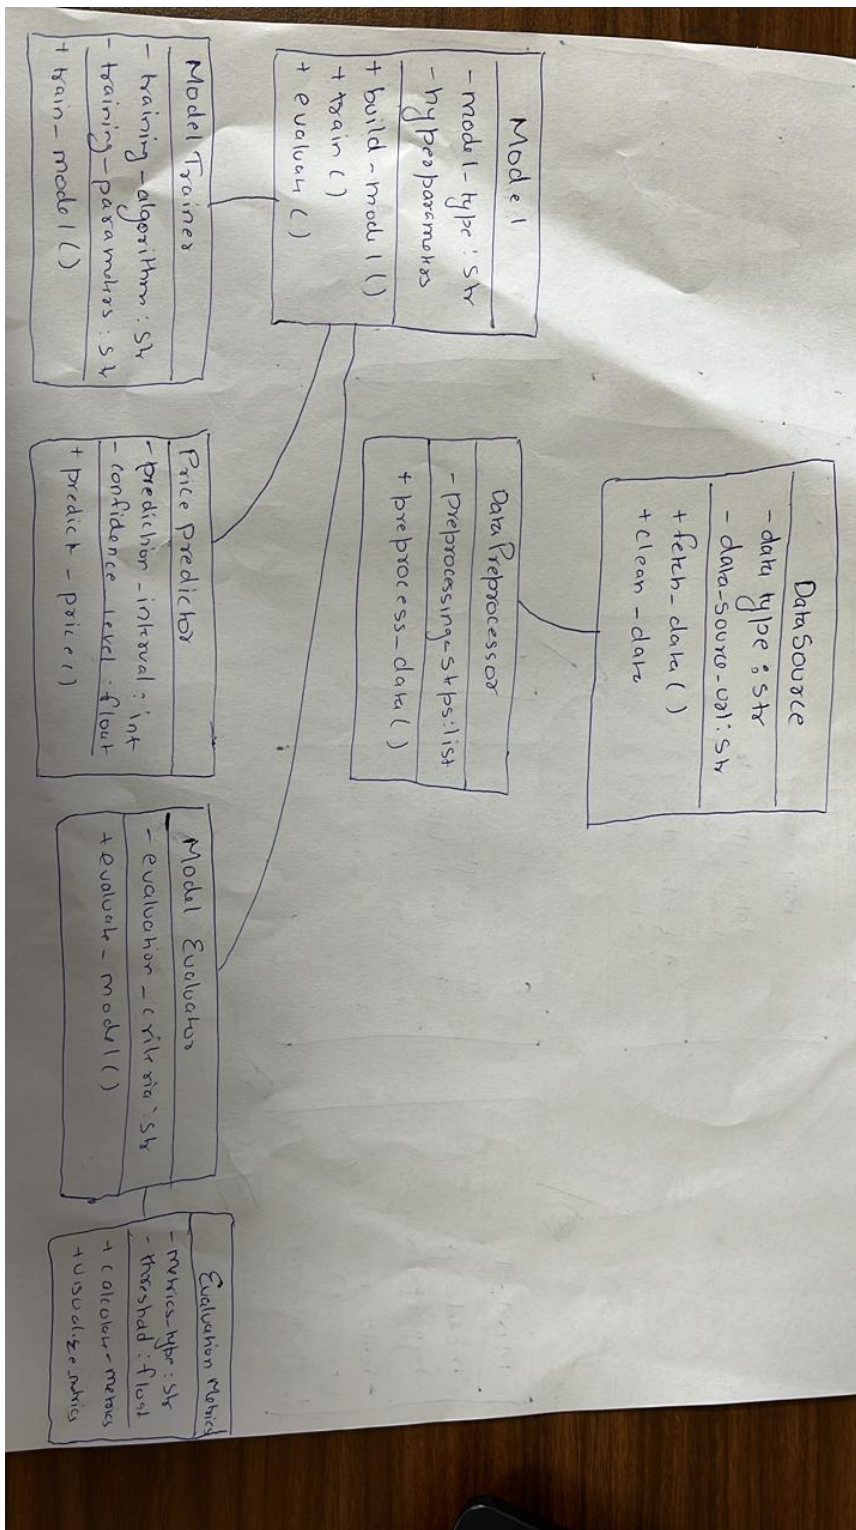 DataSource
- data type : str
- data-source-url : str
+ fetch_data()
+ clean - data
DataPreprocessor
- preprocessing-stps:list
+ preprocess_data()
Model
- model-type : str
- hyperparameters
+ build-model()
+ train()
+ evaluate()
Model Trainer
- training-algorithm : str
- training-parameters : str
+ train-model()
Price Predictor
- prediction-interval : int
- confidence_level : float
+ predict-price()
Model Evaluator
- evaluation-criteria : str
+ evaluate-model()
Evaluation Metrics
- metrics-type : str
- threshold : float
+ calculate-metrics
+ visualize_metrics